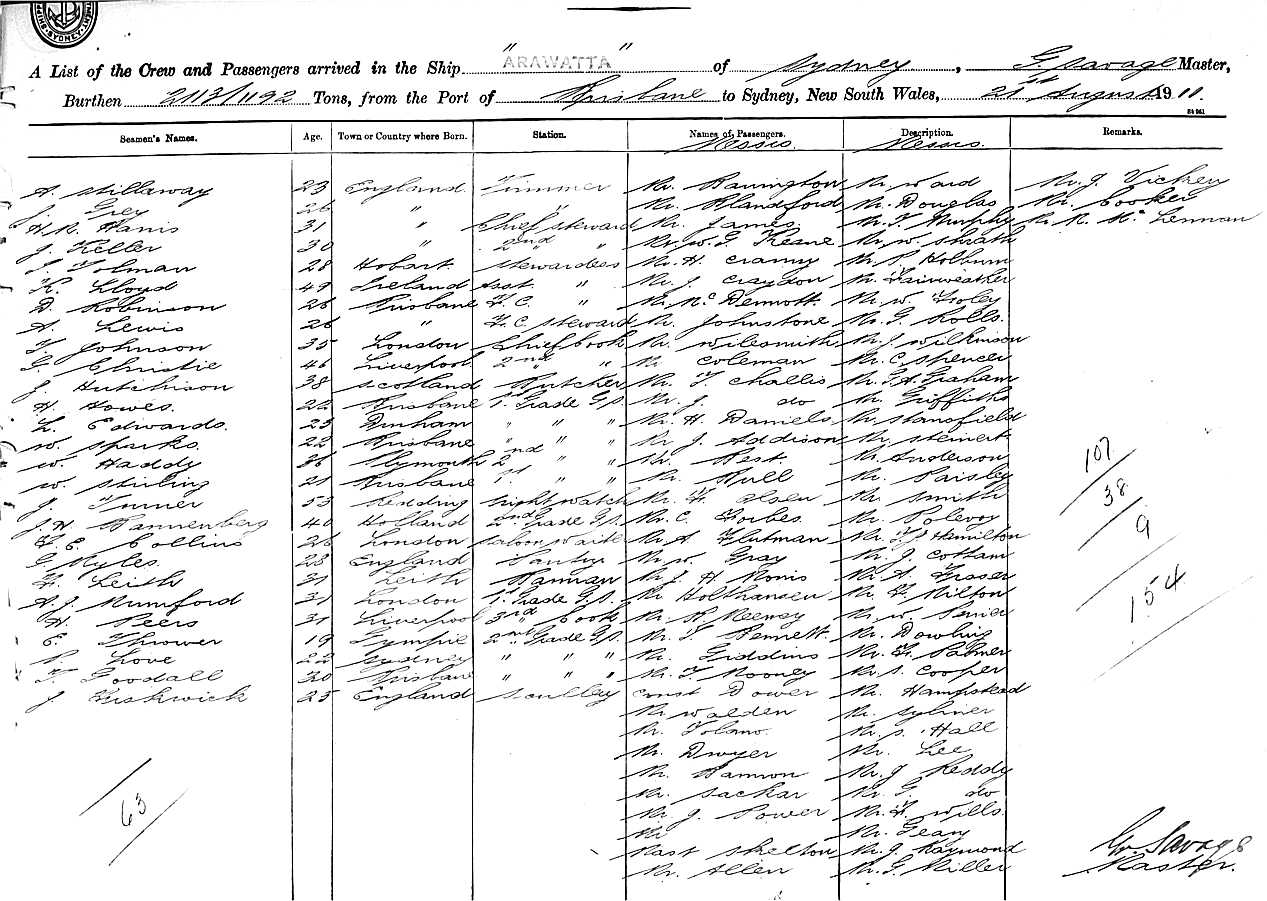 SYDNEY
A List of the Crew and Passengers arrived in the Ship "ARAWATTA" of Sydney, G Savage Master,
Burthen 2113/1192 Tons, from the Port of Brisbane to Sydney, New South Wales, 21st August 1911.
Seamen's Names. Age. Town or Country where Born. Station. Names of Passengers. Description. Remarks.
Messrs. Messrs.
A. Stillaway 23 England Trimmer Mr. Barrington Mr Ward Mr. J. Vickery
J. Grey 26 " " Mr. Blandford Mr. Douglas Mr. Cooker
H. R. Harris 31 " Chief steward Mr. James Mr. T. Murphy Mr R. McLennan
J. Keller 30 " 2nd " Mr W. G. Keane Mr W. Shrath
T. Tolman 28 Hobart Stewardess Mr. H. Cramy Mr P. Holburn
K. Lloyd 49 Ireland Asst. " Mr. J. Craydon Mr. Fairweather
D. Robinson 26 Brisbane F. C. " Mr. McDermott Mr. W. Foley
A. Lewis 26 " F. C. Steward Mr. Johnstone Mr. G. Rolls
T. Johnson 35 London Chief Cook Mr. Wilesmith Mr. J. Wilkinson
G. Christie 46 Liverpool 2nd " Mr Coleman Mr. C. Spencer
J. Hutchison 38 Scotland Butcher Mr. T. Challis Mr. G. A. Graham
H. Howes. 22 Brisbane 1st Grade G.S. Mr. J. do Mr. Griffiths
L. Edwards. 25 Durham " " " Mr. H. Daniels Mr Stansfield
W. Sparks. 22 Brisbane " " " Mr J. Addison Mr Steinert
W. Haddy 36 Plymouth 2nd " " Mr. Best. Mr. Anderson
W. Stirling 21 Brisbane 1st " " Mr. Bull Mr. Paisley
J. Turner 53 Redding Night watch Mr. F. Olsen Mr Smith
J. H. Pannenberg 40 Holland 2nd Grade G.S. Mr. C. Forbes Mr. Polevoy
F. C. Collins 26 London Saloon Waiter Mr. A. Flutman Mr. T. J. Hamilton
G Myles. 23 England Pantry Mr. W. Gray Mr. J Cotham
F. Leith 31 Leith Barman Mr. J. H. Morris Mr. A. Fraser
A. J. Mumford 31 London 1st Grade G.S. Mr Holthausen Mr. H. Milton
H. Peers 31 Liverpool 3rd Cook Mr. P. Meeney Mr. W. Senior
C. Thrower 19 Gympie 2nd Grade G.S. Mr. T. Bennett. Mr. Dowling
P. Love 22 Sydney " " " Mr. Giddins Mr. F. Palmer
T. Goodall 30 Brisbane " " " Mr. T. Mooney Mr. S. Cooper
J. Fishwick 25 England Scullery Const Dower Mr. Hampstead
Mr Walden Mr. Syliner
Mr. Tolano. Mr. S. Hall
Mr. Dwyer Mr. Lee
Mr. Bannon Mr. J Reddy
Mr. Sackar Mr. G. do
Mr. J. Power Mr. F. Wills.
Mr Mr. Geary
Mast Skelton Mr. J. Raymond
Mr. Allen Mr. G. Miller
63
107
38
9
154
G. Savage
Master.